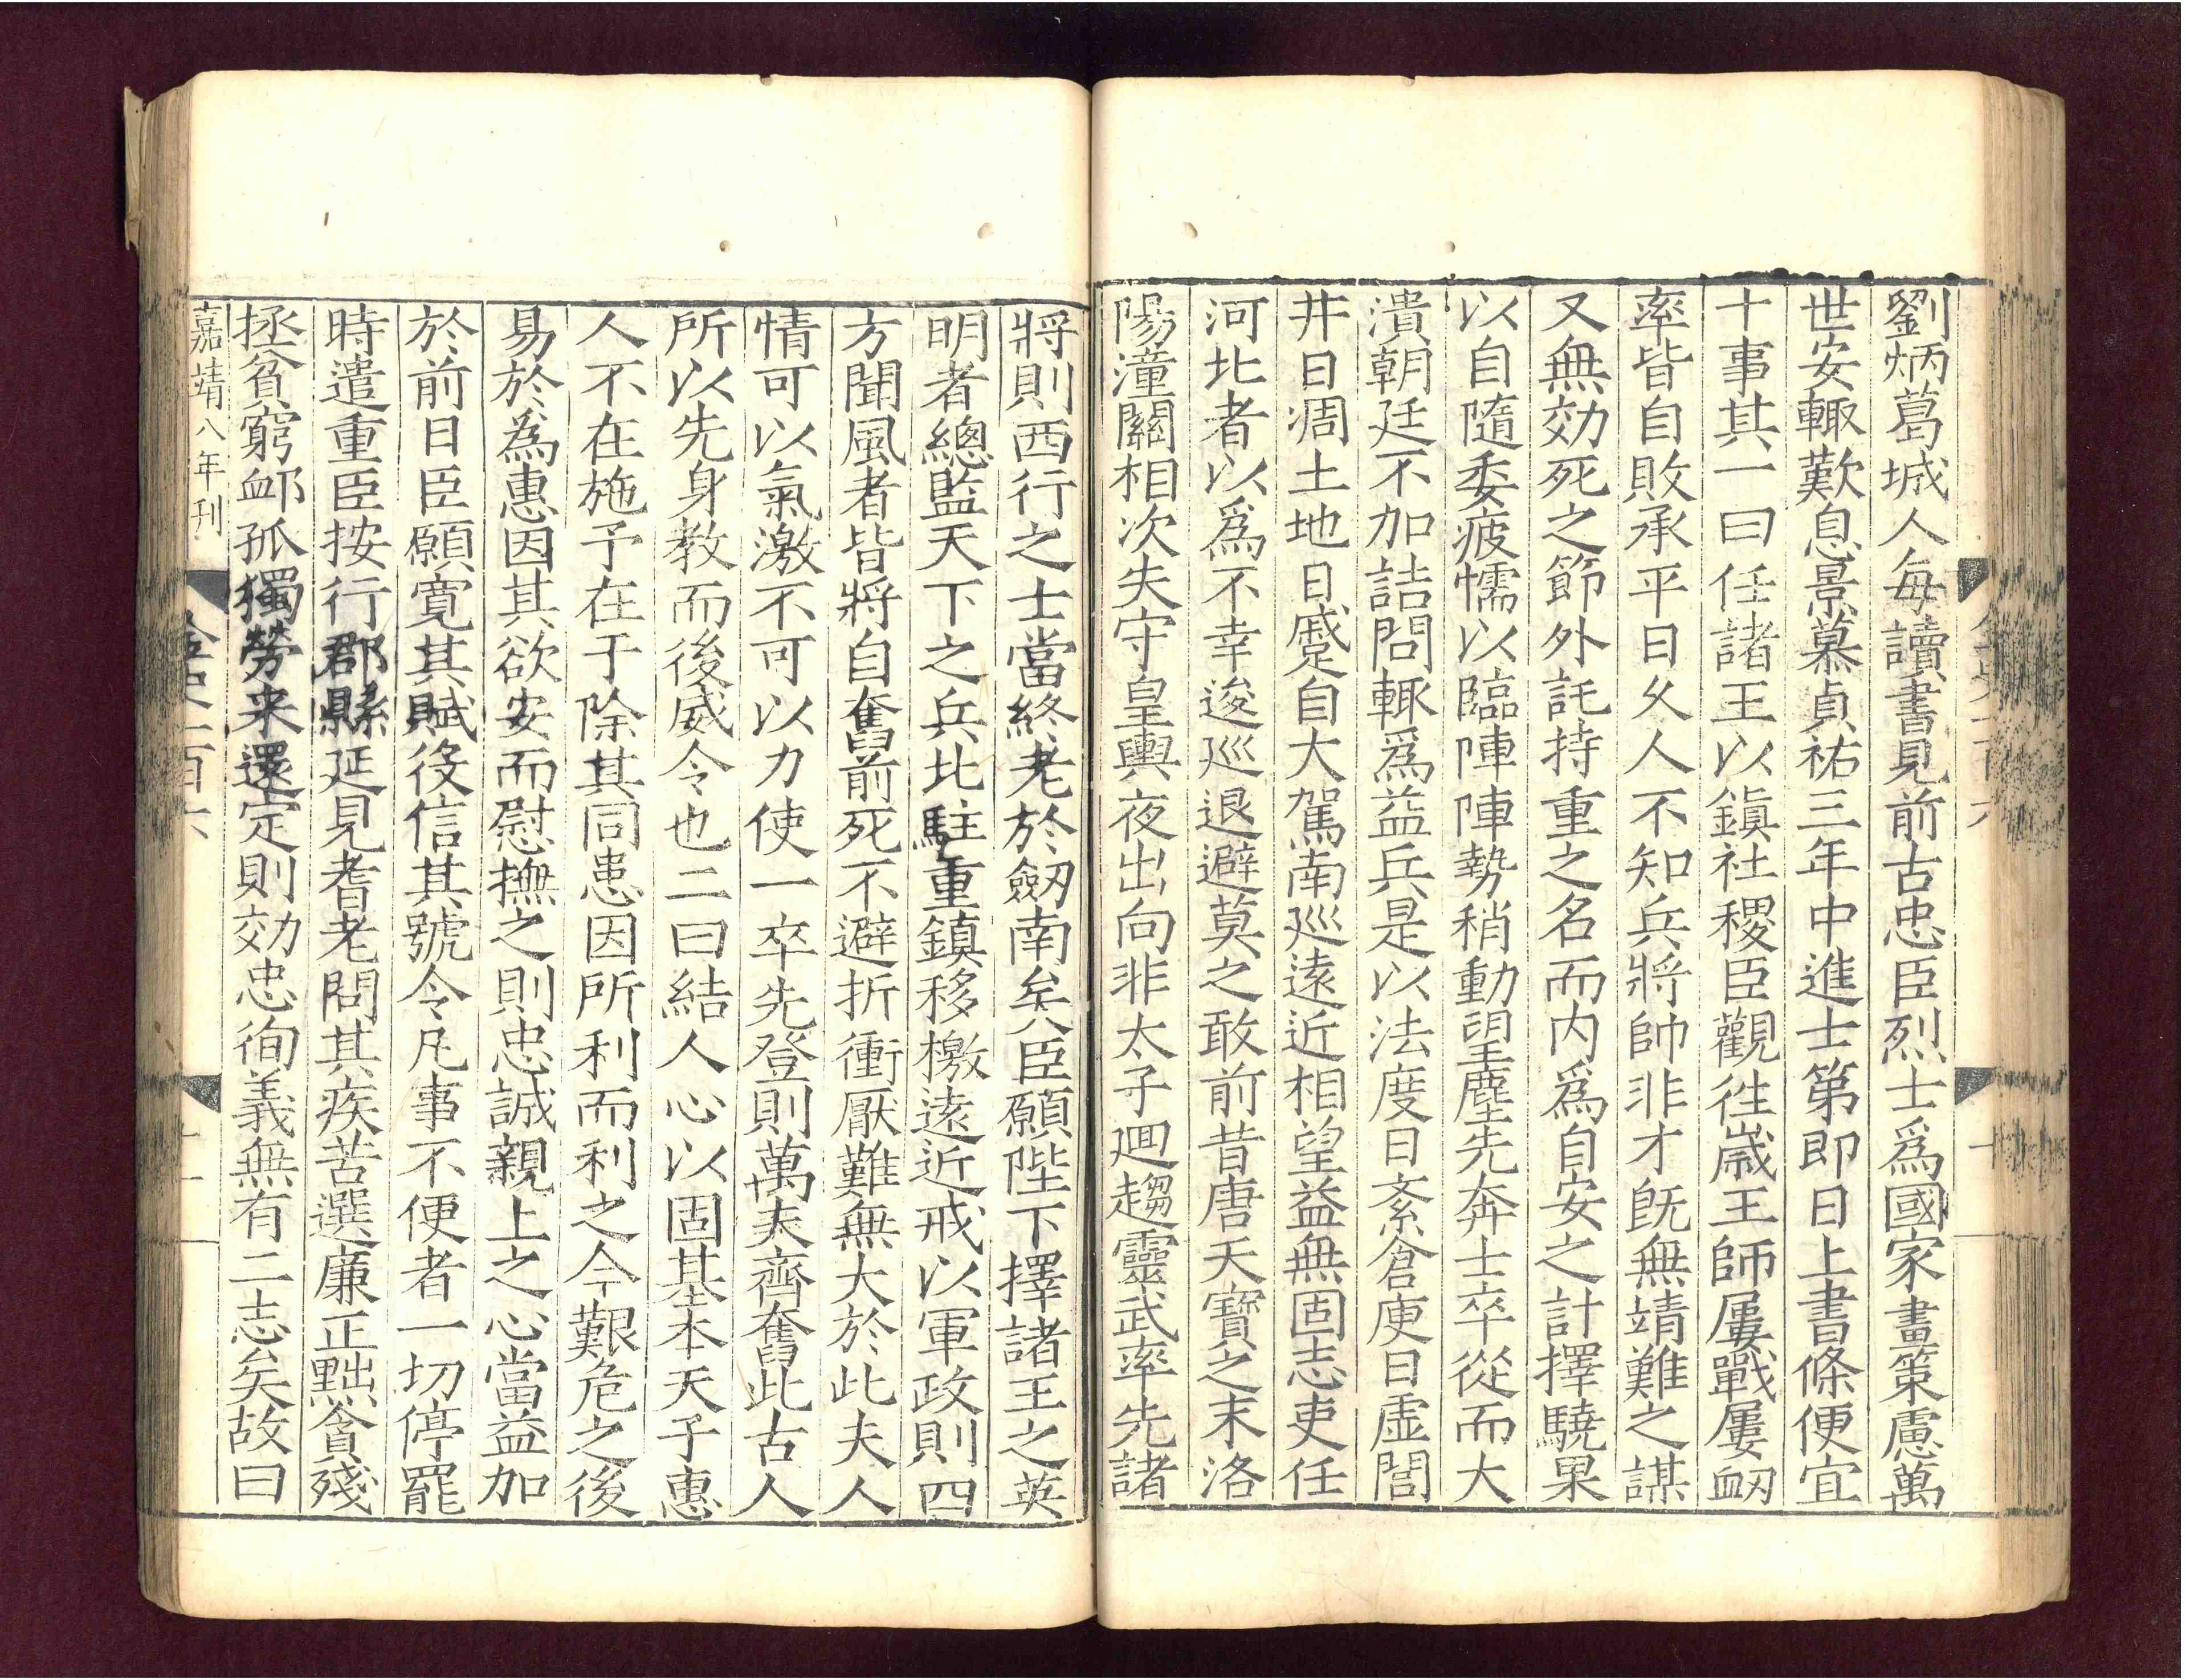 劉炳葛城人毎讀書見前古忠臣烈士爲國家畫策慮萬
世安輙歎息景慕貞祐三年中進士第即日上書條便宜
十事其一曰任諸王以鎭社稷臣觀徃歳王師屢戰屢衂
率皆自敗承平日乆人不知兵將帥非才旣無靖難之謀
又無効死之節外託持重之名而内爲自安之計擇驍果
以自隨委疲懦以臨陣陣勢稍動望塵先奔士卒從而大
潰朝廷不加詰問輙爲益兵是以法度日紊倉庾日虛閭
井日凋土地日蹙自大駕南巡遠近相望益無固志吏任
河北者以爲不幸逡巡退避莫之敢前昔唐天寶之末洛
陽潼關相次失守皇輿夜出向非太子迴趨靈武率先諸
將則西行之士當終老於劒南矣臣願陛下擇諸王之英
明者總監天下之兵北駐重鎮移檄遠近戒以軍政則四
方聞風者皆將自奮前死不避折衝厭難無大於此夫人
情可以氣激不可以力使一卒先登則萬夫齊奮此古人
所以先身教而後威令也二曰結人心以固基本天子惠
人不在施予在于除其同患因所利而利之今艱危之後
易於爲惠因其欲安而慰撫之則忠誠親上之心當益加
於前日臣願寛其賦役信其號令凡事不便者一切停罷
時遣重臣按行郡縣延見耆老問其疾苦選廉正黜貪殘
拯貧窮衈孤獨勞来還定則効忠徇義無有二志矣故曰
嘉靖八年刋
金史一百六
十一